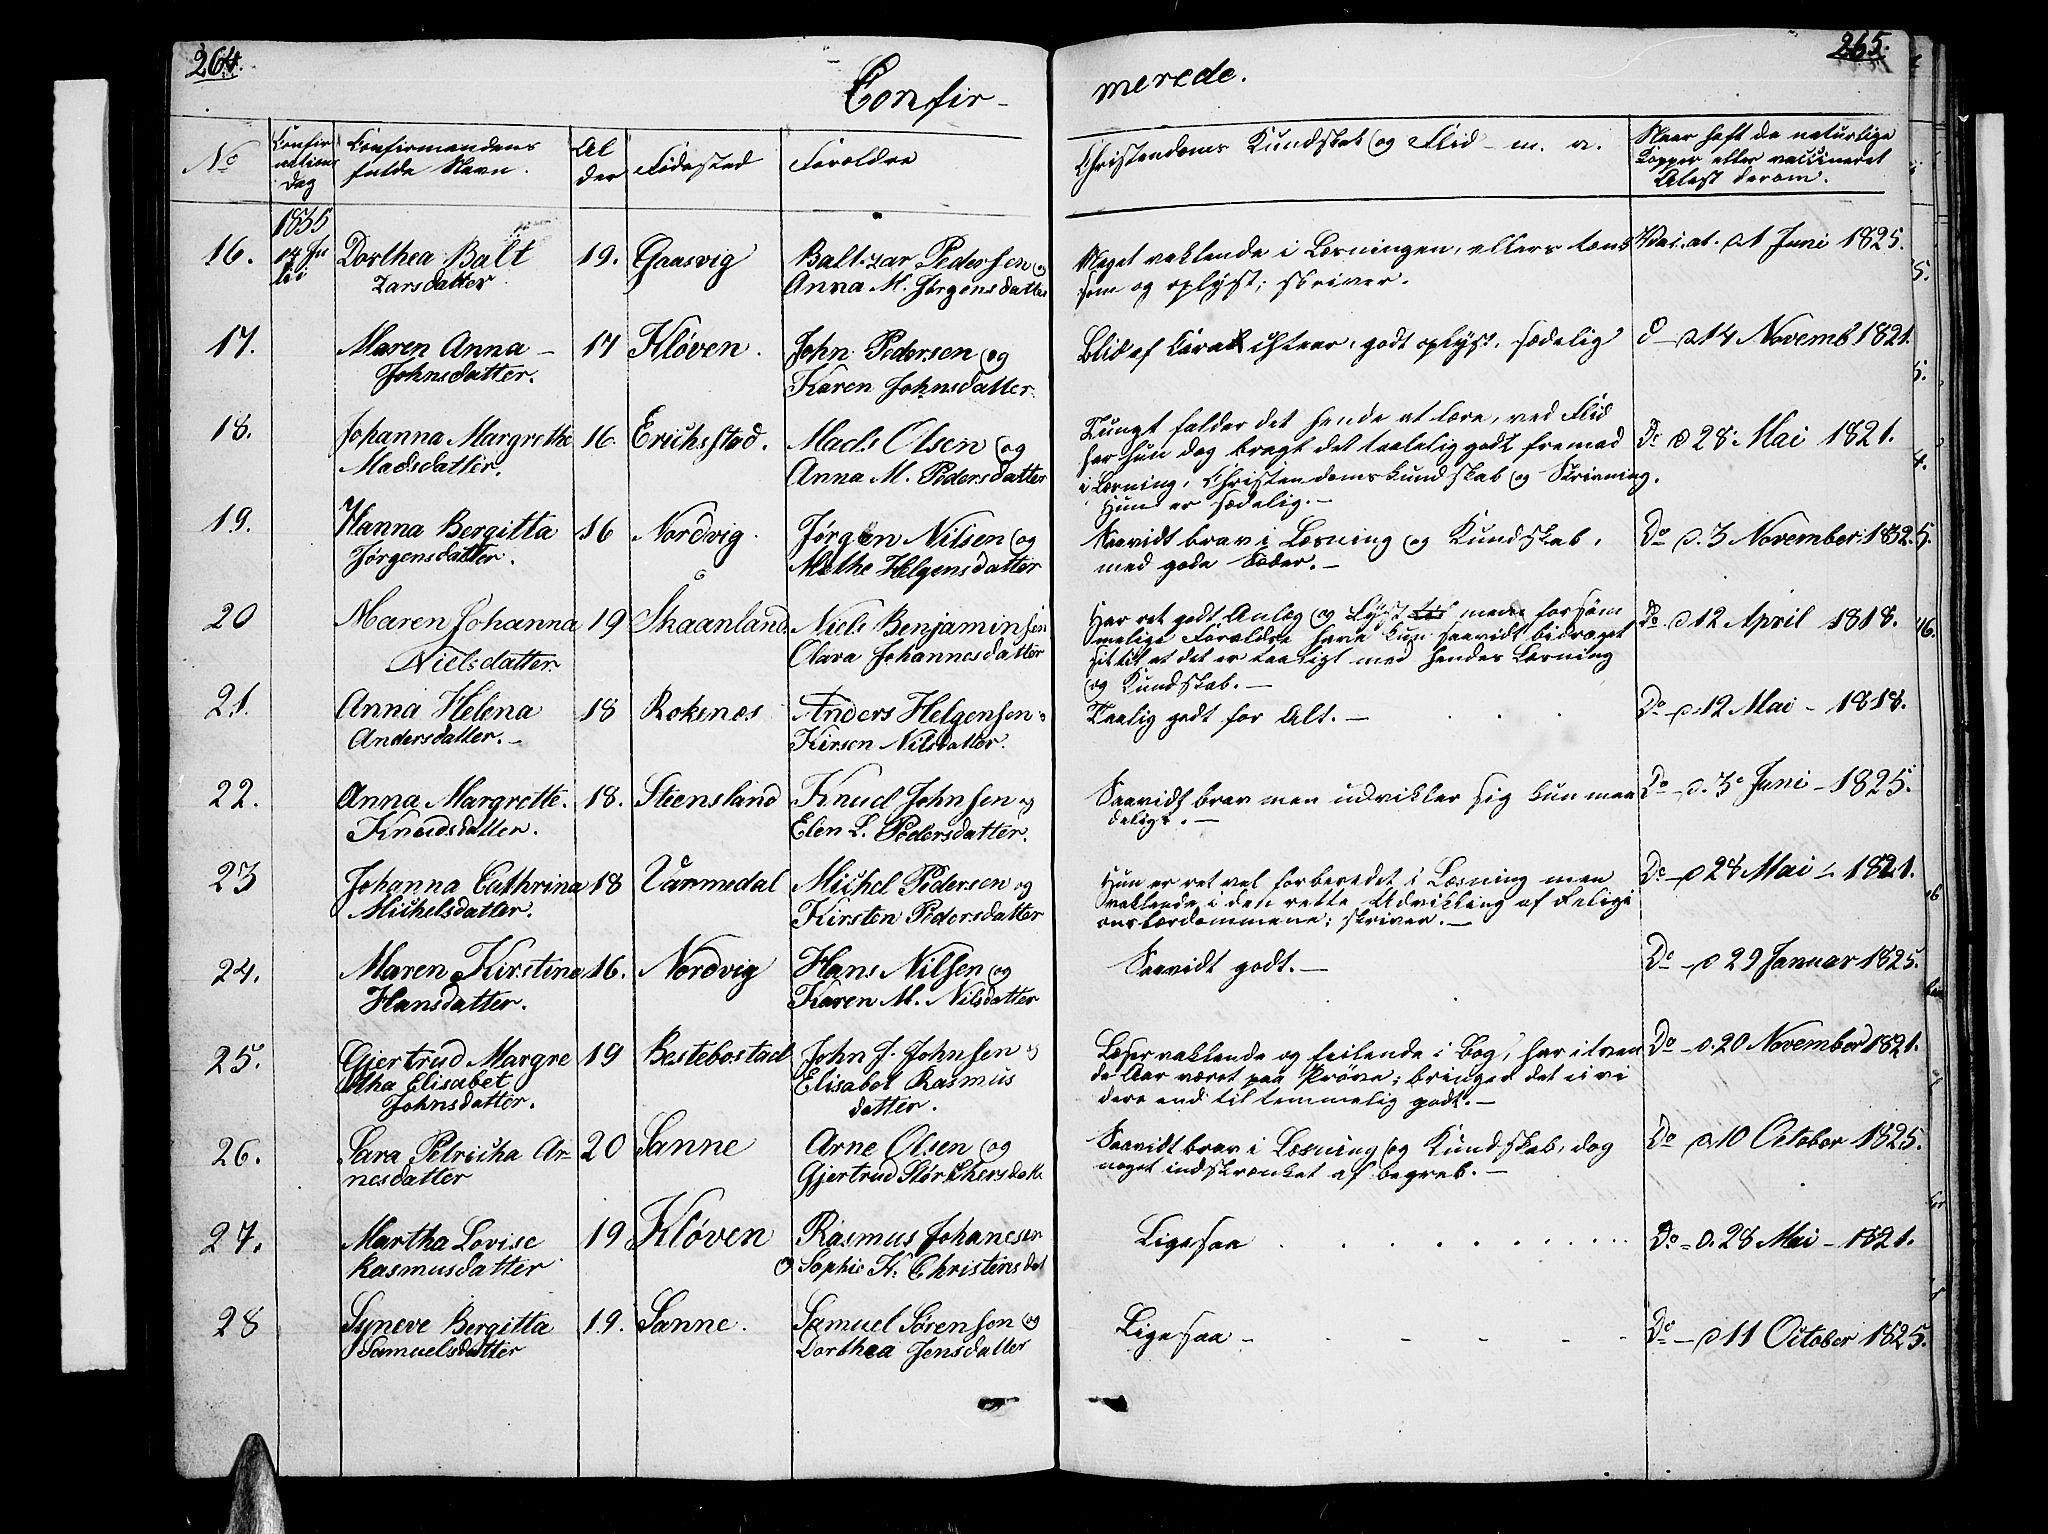 264.
265.
Confir-
merede.
No
Confir
mations
Dag
Confirmandens
fulde Navn.
Al
der
Fødested
Forældre
Christendoms Kundskab og Flid - m. v.
Naar haft de naturlige
Kopper eller vaccineret
Atest derom.
1835
16.
Dorthea Balt
zarsdatter
19.
Gaasvig
Baltzar Pedersen og
Anna M. Jørgensdatter
Noget vaklende i Læsningen, ellers læns
som og oplyst; skriver.
1 Juni 1825.
17.
Maren Anna -
Johnsdatter.
17
Kløven.
John Pedersen og
Karen Johnsdatter.
Blid af Caracchteer, godt oplyst, sædelig
14 Novemb 1821.
18.
Johanna Margrethe
Madsdatter.
16.
Erichsstad.
Mads Olsen og
Anna M. Pedersdatter
Tungt falder det hende at lære, ved Flid
har hun dog bragt det taalelig godt fremad
i Læsning, Christendomskundskab og Skrivning.
Hun er sædelig. -
Do d 28 Mai 1821.
19.
Hanna Bergitta
Jørgensdatter.
16
Nordvig.
Jørgen Nilsen og
Methe Helgensdatter
Saavidt brav i Læsning og Kundskab,
med gode Sæder. -
Do d. 3 November 1825.
20
Maren Johanna
Nielsdatter
19
Skaanland
Niels Benjaminsen
Clara Johannesdatter
Har ret godt Anlæg og Lyst men forsøm
melige Forældre have kun saavidt bidraget
hertil at det er taaligt med hendes Læsning
og Kundskab. -
Do d 12 April 1818.
21.
Anna Helena
Andersdatter. -
18
Rokenes
Anders Helgensen
Kirsen Nilsdatter.
Taalig godt for Alt. -
Do d. 12 Mai - 1818.
22.
Anna Margrette.
Knudsdatter.
18.
Steensland
Knud Johnsen og
Elen L. Pedersdatter.
Saavidt brav men udvikler sig kun maa
deligt. -
Do - d. 3 Juni - 1825.
23
Johanna Cathrina
Michelsdatter.
18
Varmedal
Michel Pedersen og
Kirsten Pedersdatter
Hun er ret vel forberedet i Læsning men
vaklende i den rette Udvikling af Religi
onslærdommene; skriver. -
Do - d 28 Mai - 1821.
24.
Maren Kirstine
Hansdatter.
16.
Nordvig
Hans Nilsen og
Karen M. Nilsdatter
Saavidt godt. -
Do - d 29 Januar 1825.
25.
Gjertrud Margre
tha Elisabet
Johnsdatter.
19
Bestebostad
John J. Johnsen og
Elisabet Rasmus
datter.
Læser vaklende og feilende i Bog, har itven
de Aar været paa Prøve; bringer det ei vi
dere end til temmelig godt. -
Do - d. 20 November 1821.
26.
Sara Petricha Ar-
nesdatter
20
Sanne
Arne Olsen og
Gjertrud Størchersdatt.
Saavidt brav i Læsning og Kundskab, dog
noget indskrænket af begreb. -
Do d 10 October 1825.
27.
Martha Lovise
Rasmusdatter
19
Kløven
Rasmus Johanesen
og Sophie K. Christensdat
Ligesaa
Do - d. 28 Mai - 1821.
28
Syneve Bergitta
Samuelsdatter
19.
Sanne.
Samuel Sørensen og
Dorthea Jensdatter
Ligesaa -
Do - d 11 October 1825.